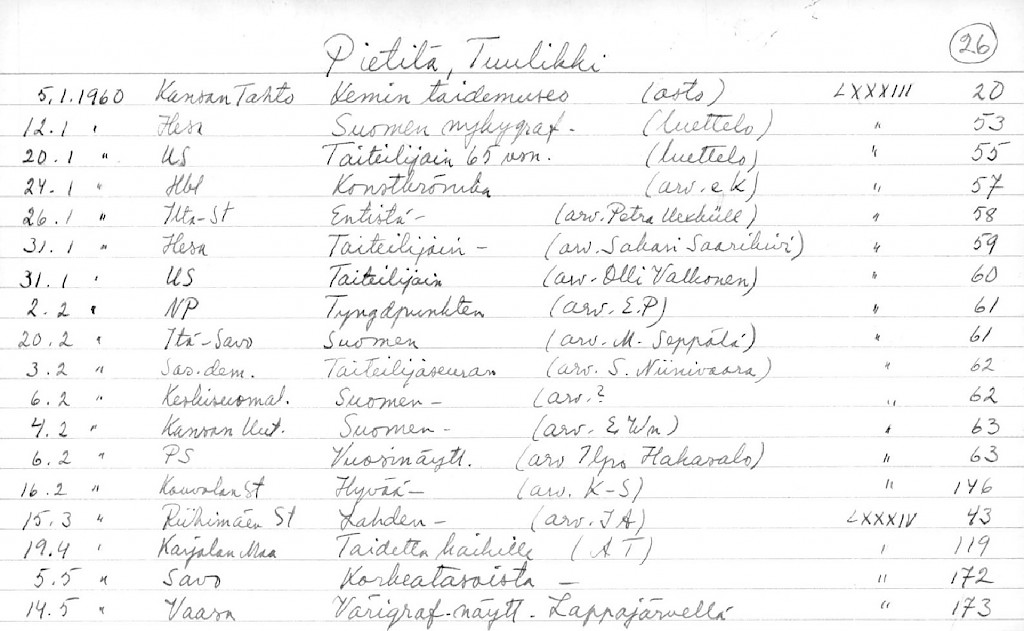 26
Pietilä, Tuulikki
5.1.1960 Kansan Tahto Kemin taidemuseo (osto) LXXXIII 20
12.1 " Hesa Suomen nykygraf. (luettelo) " 53
20.1 " US Taiteilijain 65 vsn. (luettelo) " 55
24.1 " Hbl Konstkrönika (arv. e K) " 57
26.1 " Ilta-St Entistä- (arv. Petra Uexküll) " 58
31.1 " Hesa Taiteilijain - (arv. Sakari Saarikivi) " 59
31.1 " US Taiteilijain (arv. Olli Valkonen) " 60
2.2 " NP Tyngdpunkten (arv. E.P) " 61
20.2 " Itä-Savo Suomen (arv. M. Seppälä) " 61
3.2 " Sos.dem. Taiteilijaseuran (arv. S. Niinivaara) " 62
6.2 " Keskisuomal. Suomen - (arv.? " 62
4.2 " Kansan Uut. Suomen - (arv. E Wn) " 63
6.2 " PS Vuosinäytt. (arv Ilpo Hakasalo) " 63
16.2 " Kouvolan St Hyvää- (arv. K-S) " 146
15.3 " Riihimäen St Lahden - (arv. I A) LXXXIV 43
19.4 " Karjalan Maa Taidetta kaikille (A T) " 119
5.5 " Savo Korkeatasoista - " 172
14.5 " Vaasa Värigraf.näytt. Lappajärvellä " 173